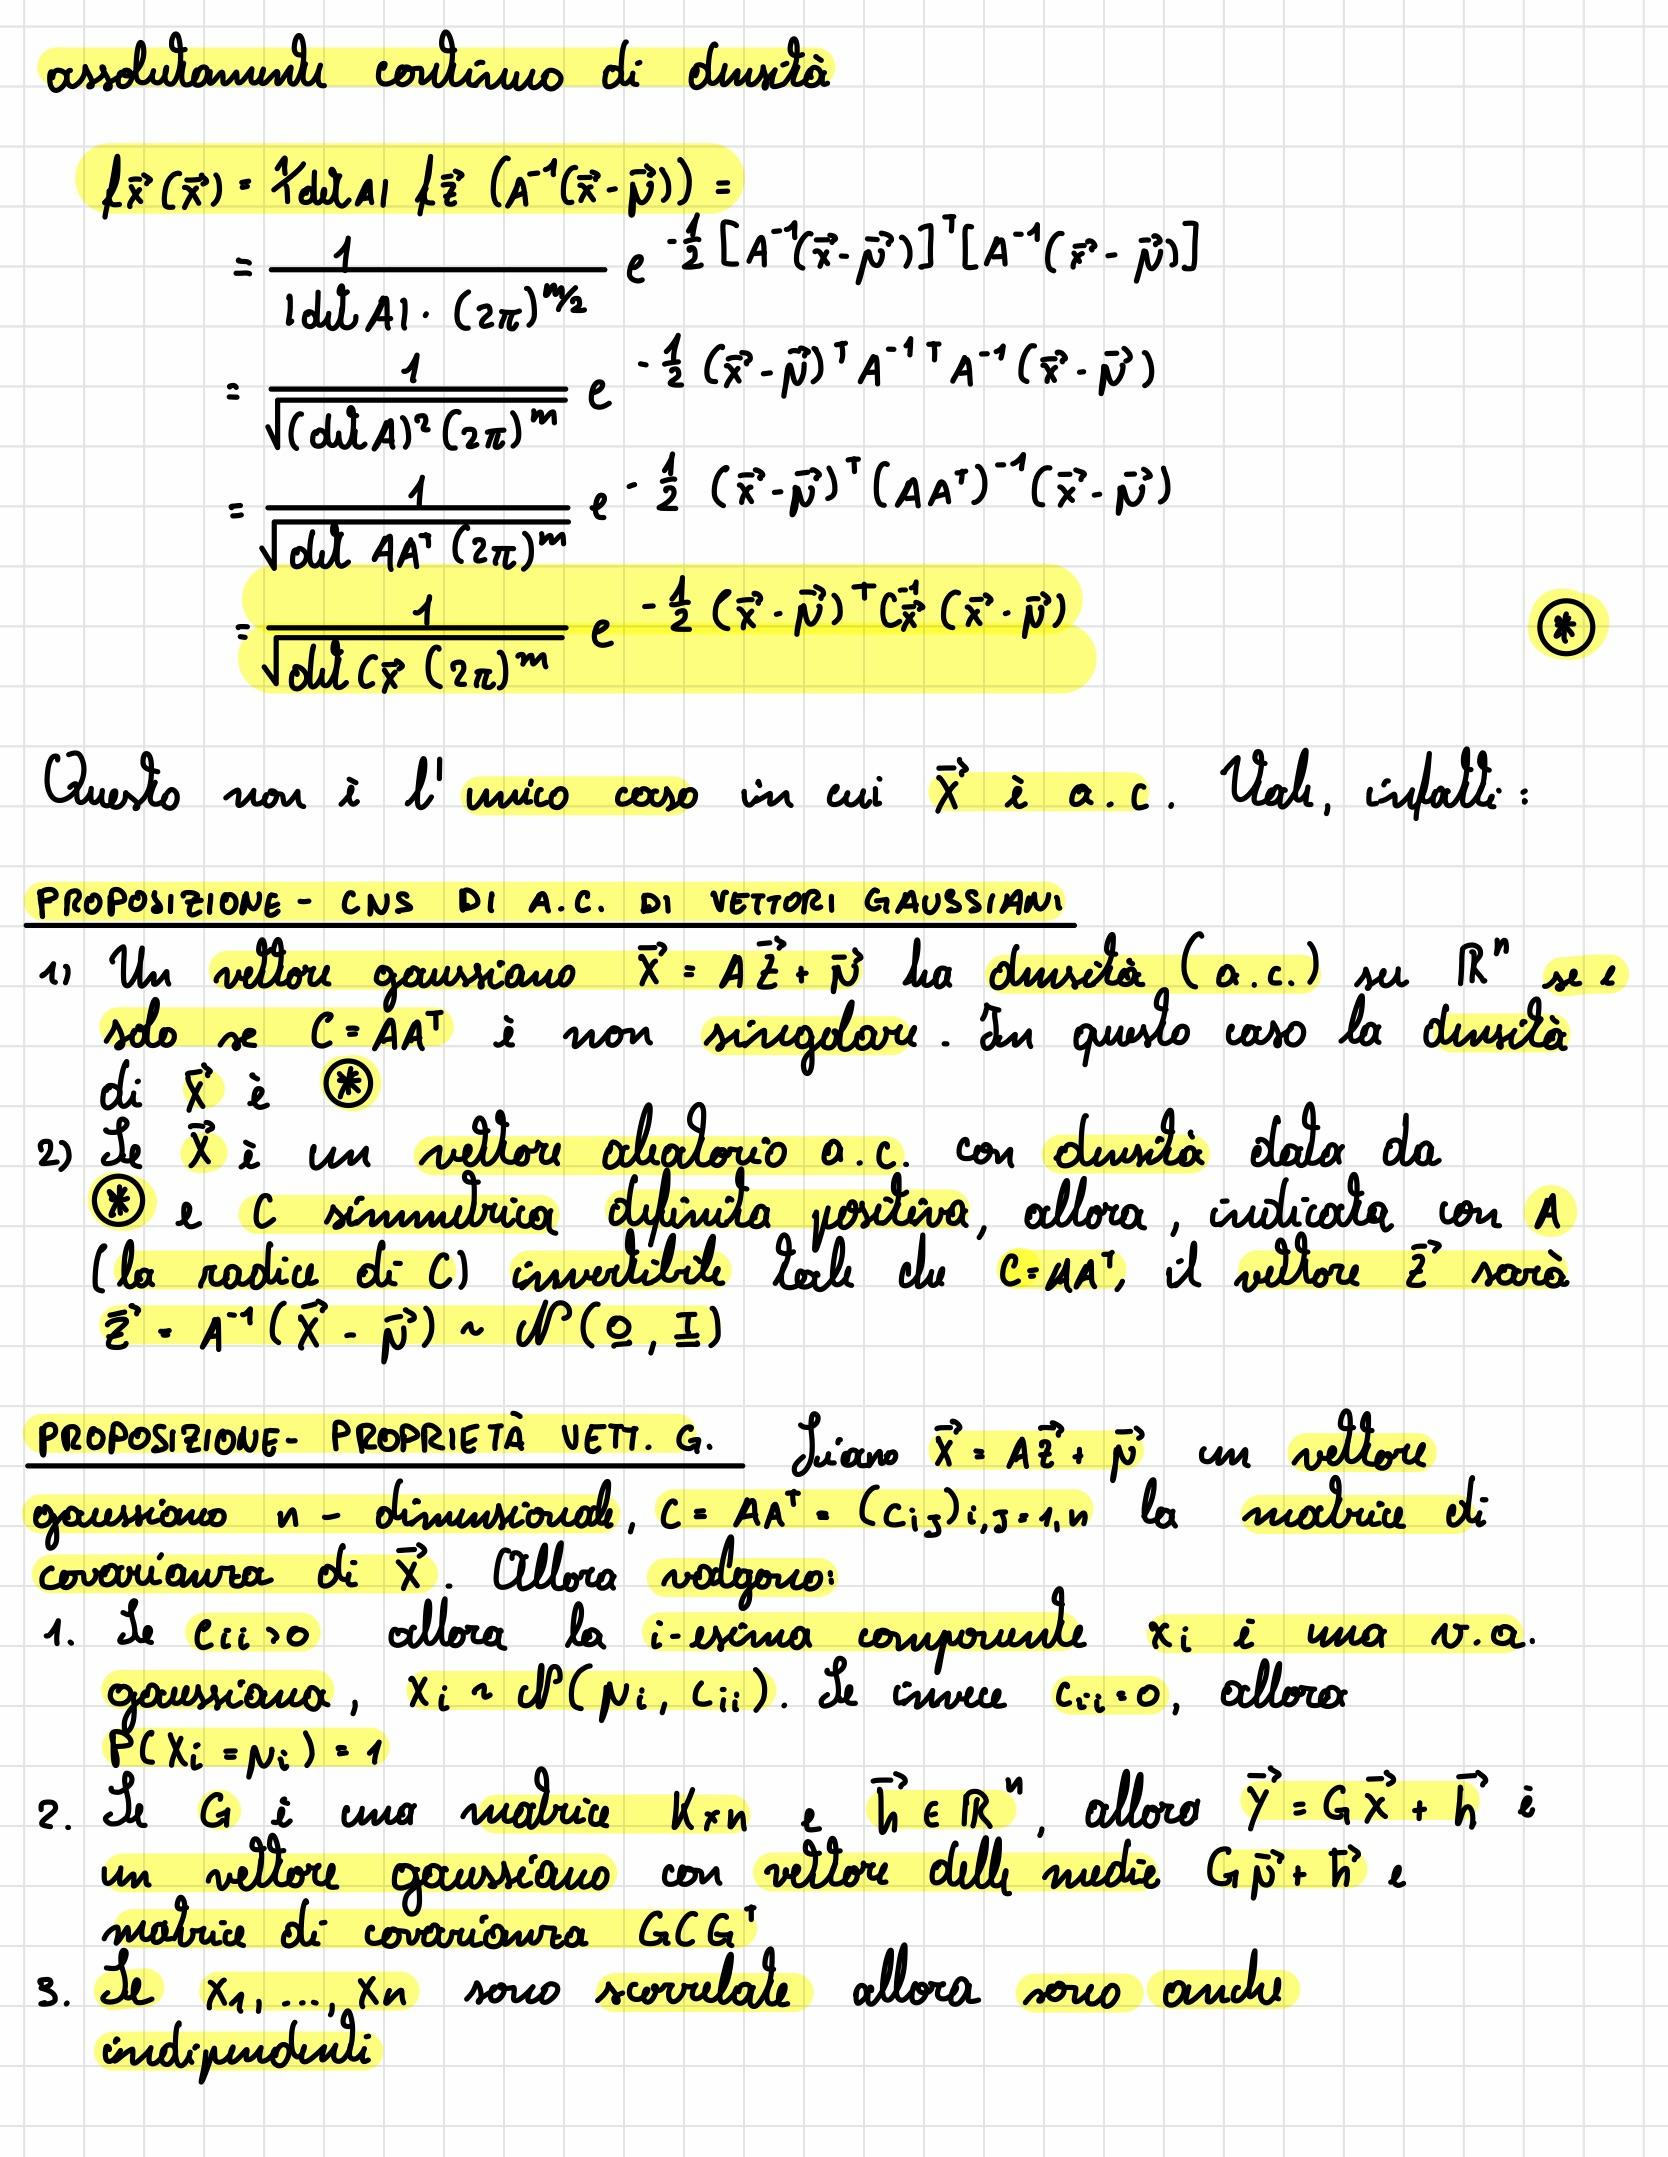 assolutamente continuo di densità
f_X⃗(x⃗) = 1/|det A| f_Z⃗ (A⁻¹(x⃗ - μ⃗)) =
= 1 / (|det A| · (2π)^(m/2)) e^(-1/2 [A⁻¹(x⃗ - μ⃗)]ᵀ [A⁻¹(x⃗ - μ⃗)])
= 1 / √((det A)² (2π)^m) e^(-1/2 (x⃗ - μ⃗)ᵀ A⁻¹ᵀ A⁻¹ (x⃗ - μ⃗))
= 1 / √(det AAᵀ (2π)^m) e^(-1/2 (x⃗ - μ⃗)ᵀ (AAᵀ)⁻¹ (x⃗ - μ⃗))
= 1 / √(det C_X⃗ (2π)^m) e^(-1/2 (x⃗ - μ⃗)ᵀ C_X⃗⁻¹ (x⃗ - μ⃗)) ⊛
Questo non è l'unico caso in cui X⃗ è a.c. Vale, infatti:
PROPOSIZIONE - CNS DI A.C. DI VETTORI GAUSSIANI
1) Un vettore gaussiano X⃗ = AZ⃗ + μ⃗ ha densità (a.c.) su ℝⁿ se e
solo se C = AAᵀ è non singolare. In questo caso la densità
di X⃗ è ⊛
2) Se X⃗ è un vettore aleatorio a.c. con densità data da
⊛ e C simmetrica definita positiva, allora, indicata con A
(la radice di C) invertibile tale che C = AAᵀ, il vettore Z⃗ sarà
Z⃗ = A⁻¹(X⃗ - μ⃗) ~ N(0, I)
PROPOSIZIONE - PROPRIETÀ VETT. G. Siano X⃗ = AZ⃗ + μ⃗ un vettore
gaussiano n - dimensionale, C = AAᵀ = (cij)i,j=1,n la matrice di
covarianza di X⃗. Allora valgono:
1. Se cii > 0 allora la i-esima componente xi è una v.a.
gaussiana, xi ~ N(μi, cii). Se invece cii = 0, allora
P(Xi = μi) = 1
2. Se G è una matrice K×n e h⃗ ∈ ℝⁿ, allora Y⃗ = GX⃗ + h⃗ è
un vettore gaussiano con vettore delle medie Gμ⃗ + h⃗ e
matrice di covarianza GCGᵀ
3. Se X1, ..., Xn sono scorrelate allora sono anche
indipendenti